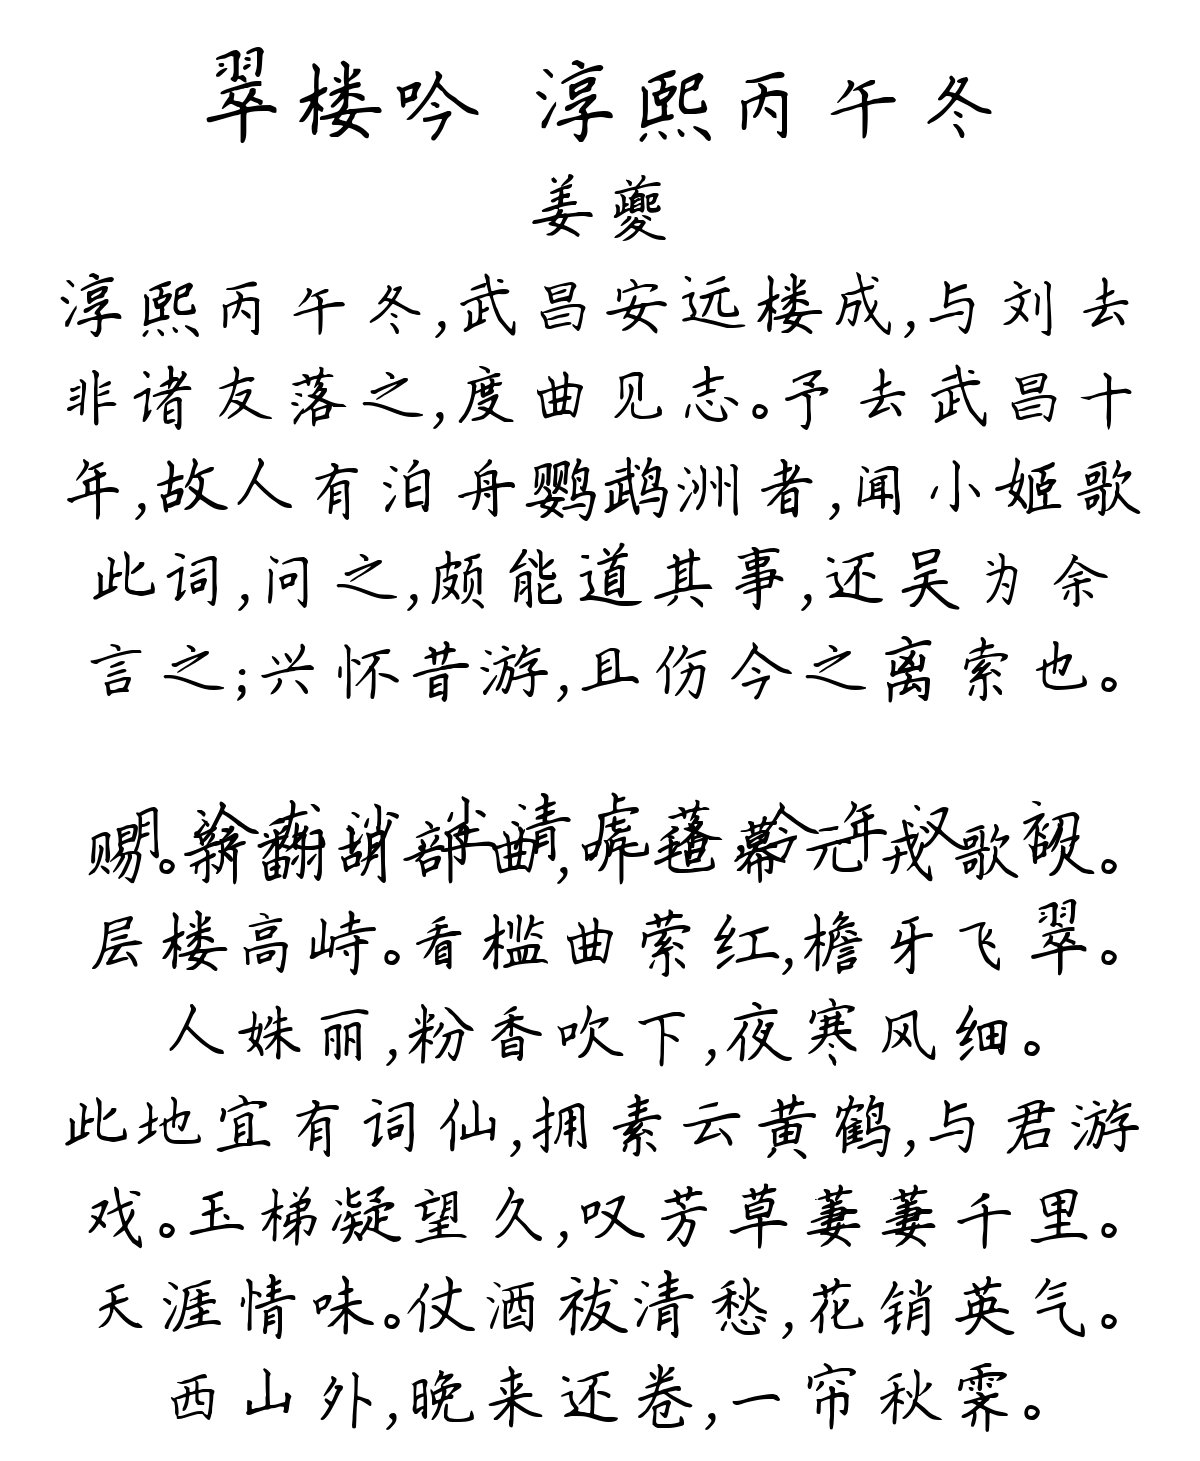 翠楼吟 淳熙丙午冬
姜夔
淳熙丙午冬,武昌安远楼成,与刘去
非诸友落之,度曲见志。予去武昌十
年,故人有泊舟鹦鹉洲者,闻小姬歌
此词,问之,颇能道其事,还吴为余
言之;兴怀昔游,且伤今之离索也。
赐。新翻胡部曲,听毡幕元戎歌吹。
层楼高峙。看槛曲萦红,檐牙飞翠。
人姝丽,粉香吹下,夜寒风细。
此地宜有词仙,拥素云黄鹤,与君游
戏。玉梯凝望久,叹芳草萋萋千里。
天涯情味。仗酒祓清愁,花销英气。
西山外,晚来还卷,一帘秋霁。